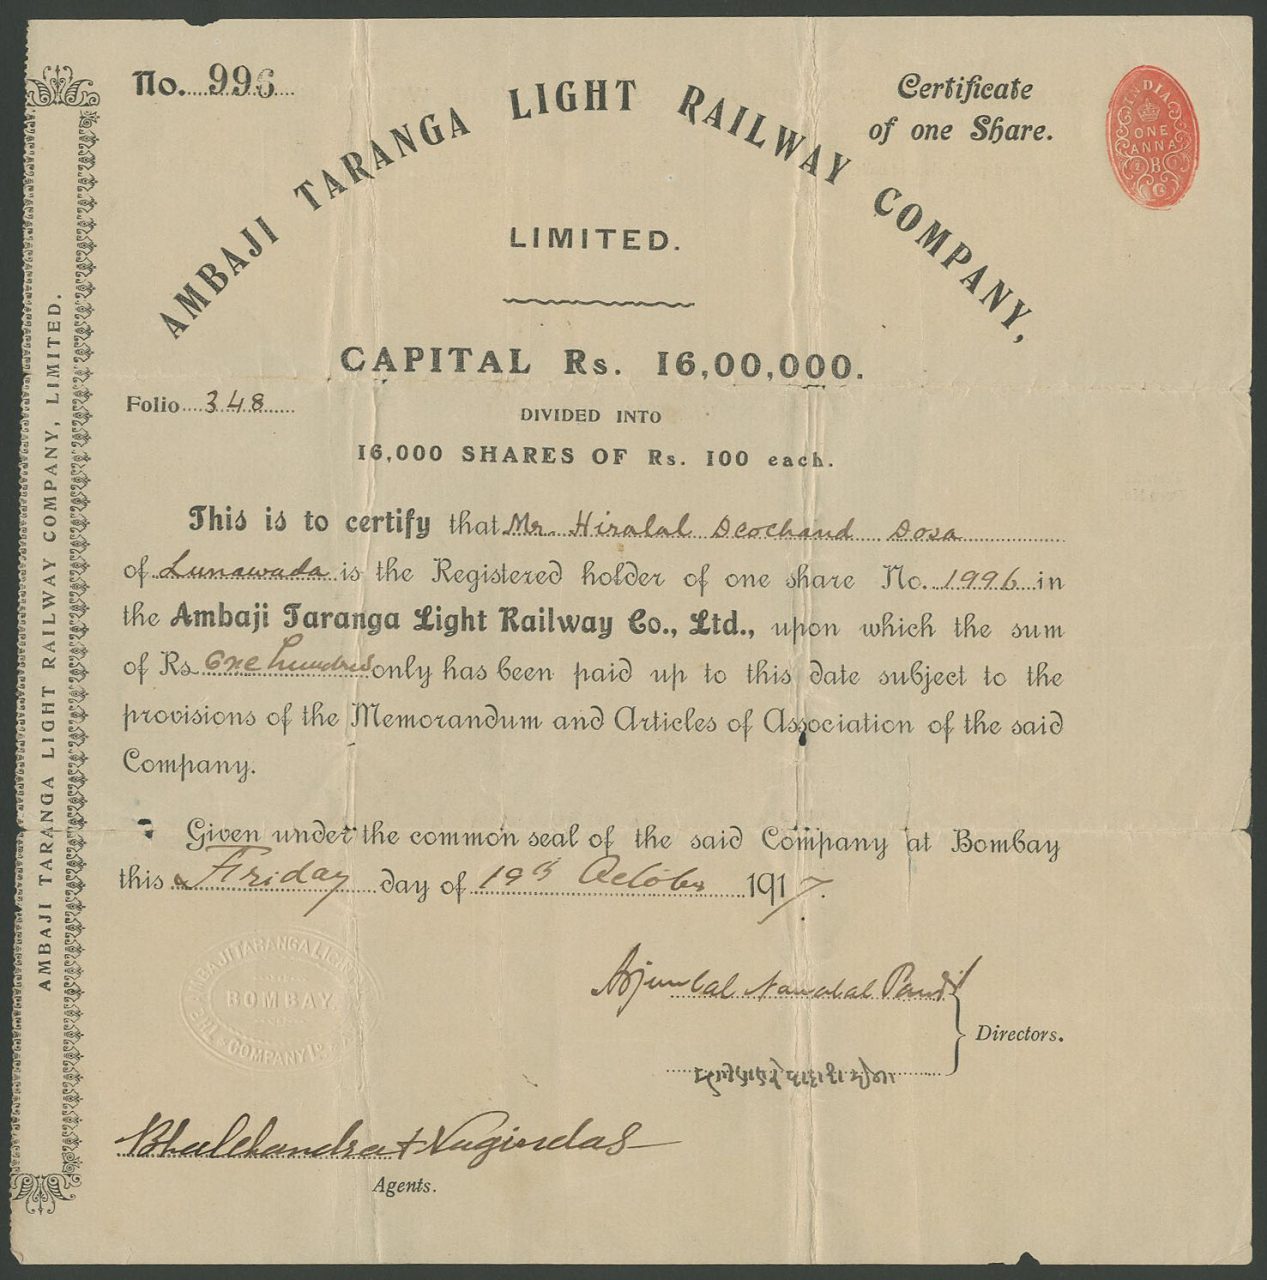 No. 996
Certificate
of one Share.
INDIA
ONE
ANNA
AMBAJI TARANGA LIGHT RAILWAY COMPANY,
LIMITED.
CAPITAL Rs. 16,00,000.
Folio 348
DIVIDED INTO
16,000 SHARES OF Rs. 100 each.
This is to certify that Mr. Hiralal Deochand Dosa
of Lunawada is the Registered holder of one share No. 1996 in
the Ambaji Taranga Light Railway Co., Ltd., upon which the sum
of Rs. One hundred only has been paid up to this date subject to the
provisions of the Memorandum and Articles of Association of the said
Company.
Given under the common seal of the said Company at Bombay
this Friday day of 19th October 1917.
BOMBAY.
Directors.
Bhalchandra & Nagindas
Agents.
AMBAJI TARANGA LIGHT RAILWAY COMPANY, LIMITED.